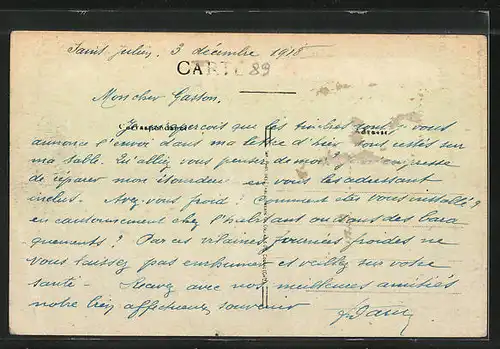 Saint Julien 3 décembre 1918
CARTE 89
Mon cher Gaston.
Je m'aperçois que les timbres dont je vous
Correspondance
annonce l'envoi dans ma lettre d'hier sont restés sur
ma table. Qu'allez vous penser de moi? Je m'empresse
de réparer mon étourderie en vous les adressant
inclus. Avez-vous froid? Comment êtes vous installés?
en cantonnement chez l'habitant ou dans des bara
quements? Par ces vilaines journées froides ne
vous laissez pas enrhumer et veillez sur votre
santé - Recevez avec nos meilleures amitiés
notre bien affectueux souvenir